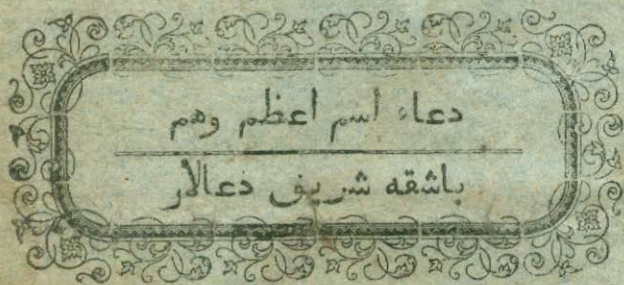 دعاء اسم اعظم وهم
باشقه شريف دعالار